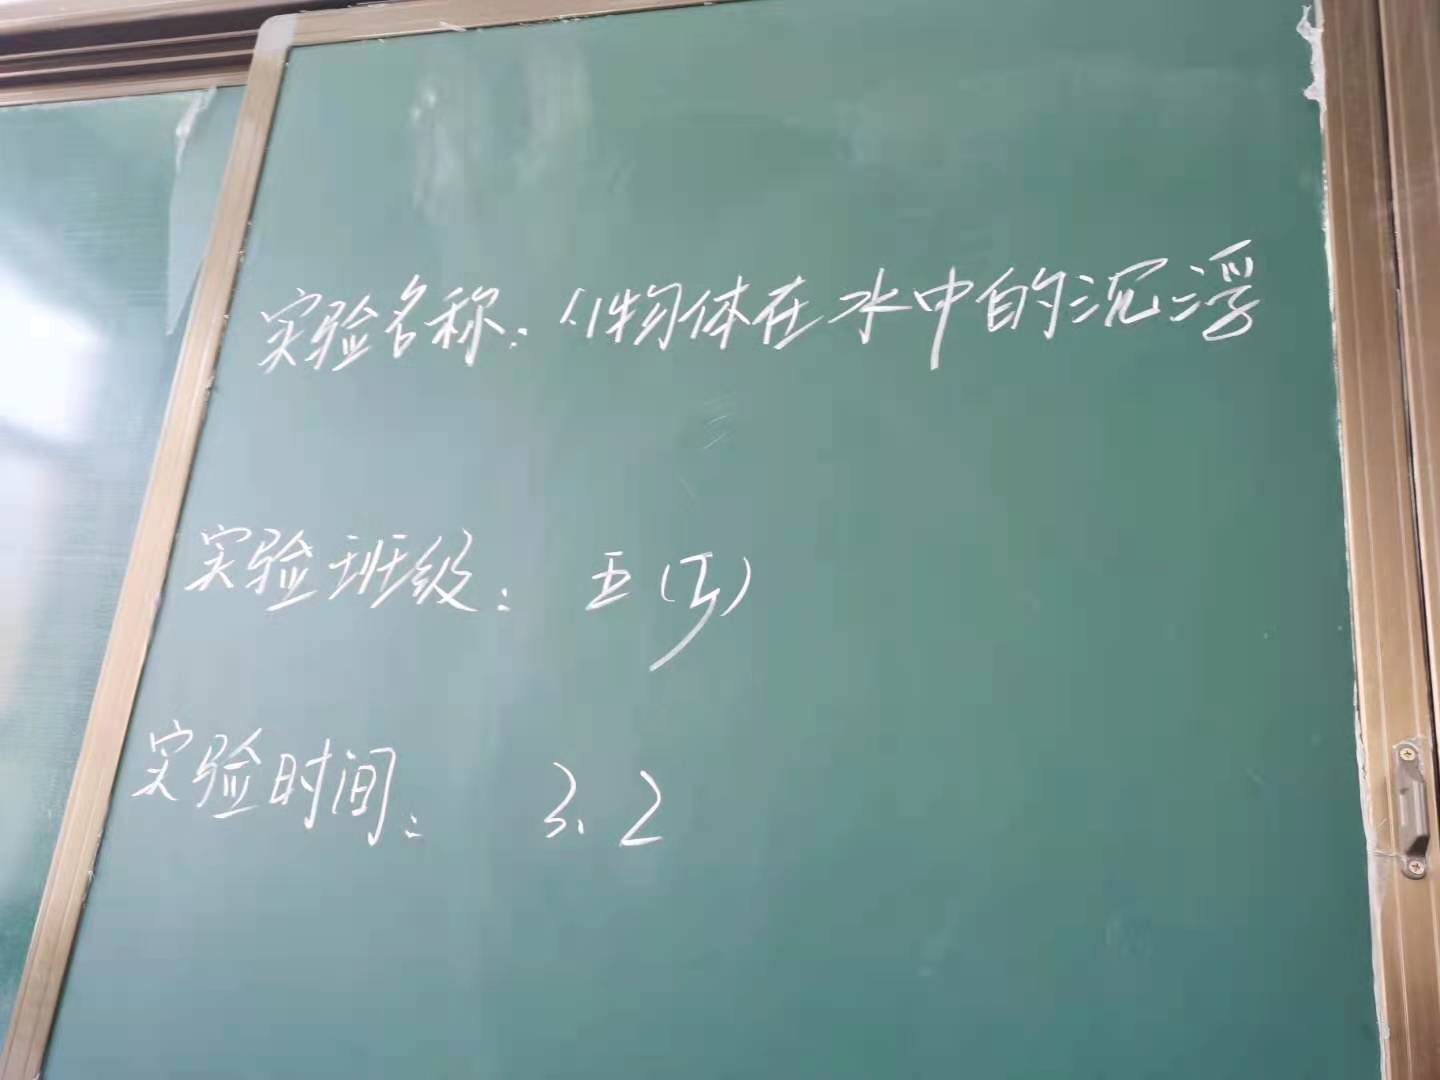 实验名称：《物体在水中的沉浮
实验班级：五(5)
实验时间：3.2